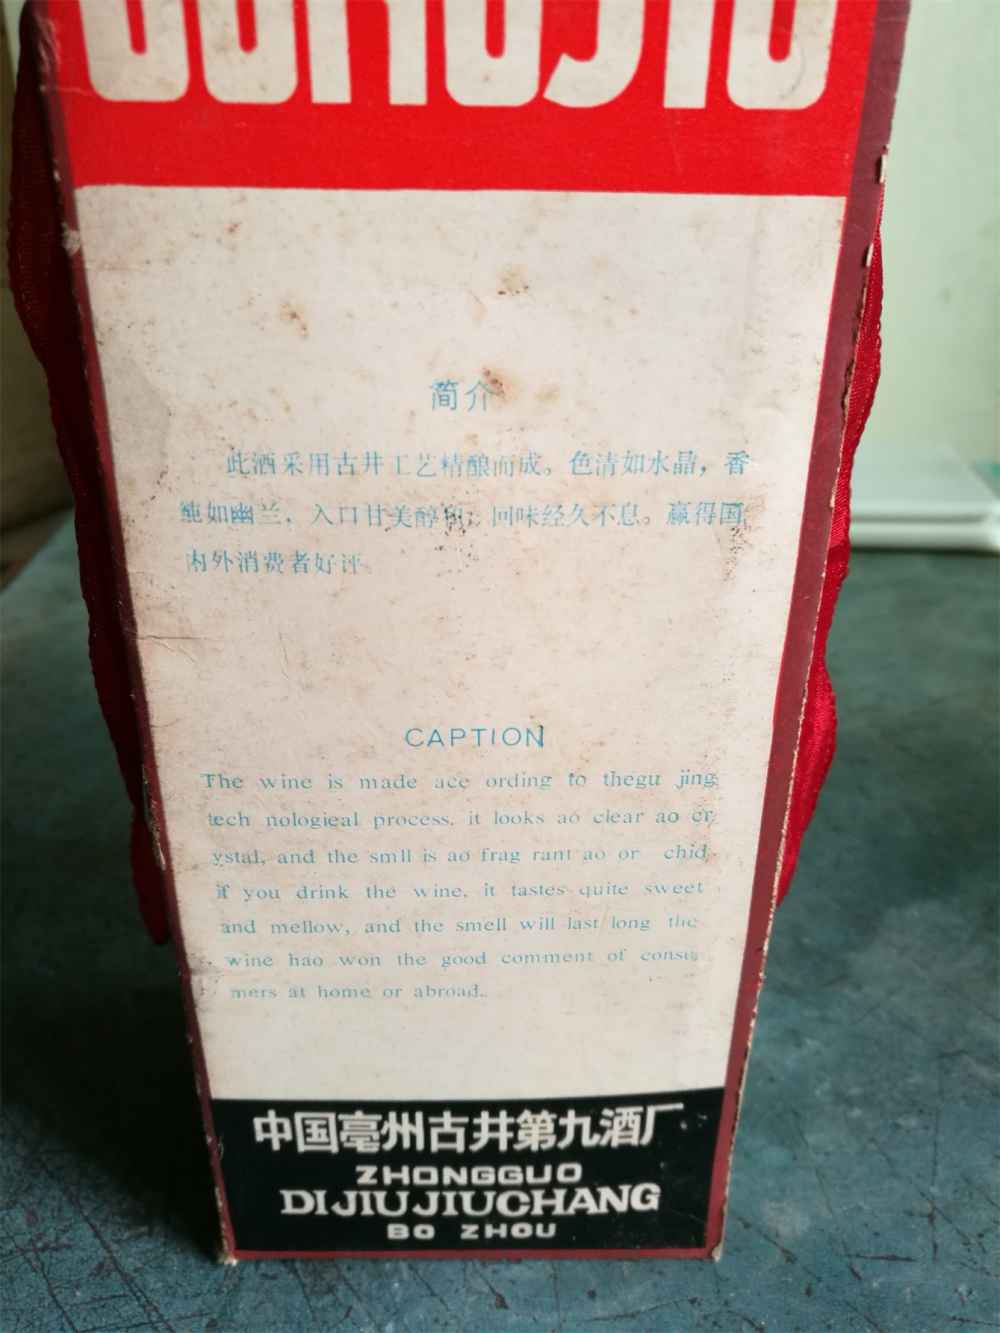 简介
此酒采用古井工艺精酿而成。色清如水晶，香
纯如幽兰，入口甘美醇和；回味经久不息。赢得国
内外消费者好评
CAPTION
The wine is made acc ording to thegu jing
tech nological process. it looks ao clear ao cr
ystal, and the smll is ao frag rant ao or chid,
if you drink the wine, it tastes quite sweet
and mellow, and the smell will last long the
wine hao won the good comment of consu
mers at home or abroad..
中国亳州古井第九酒厂
ZHONGGUO
DIJIUJIUCHANG
BO ZHOU